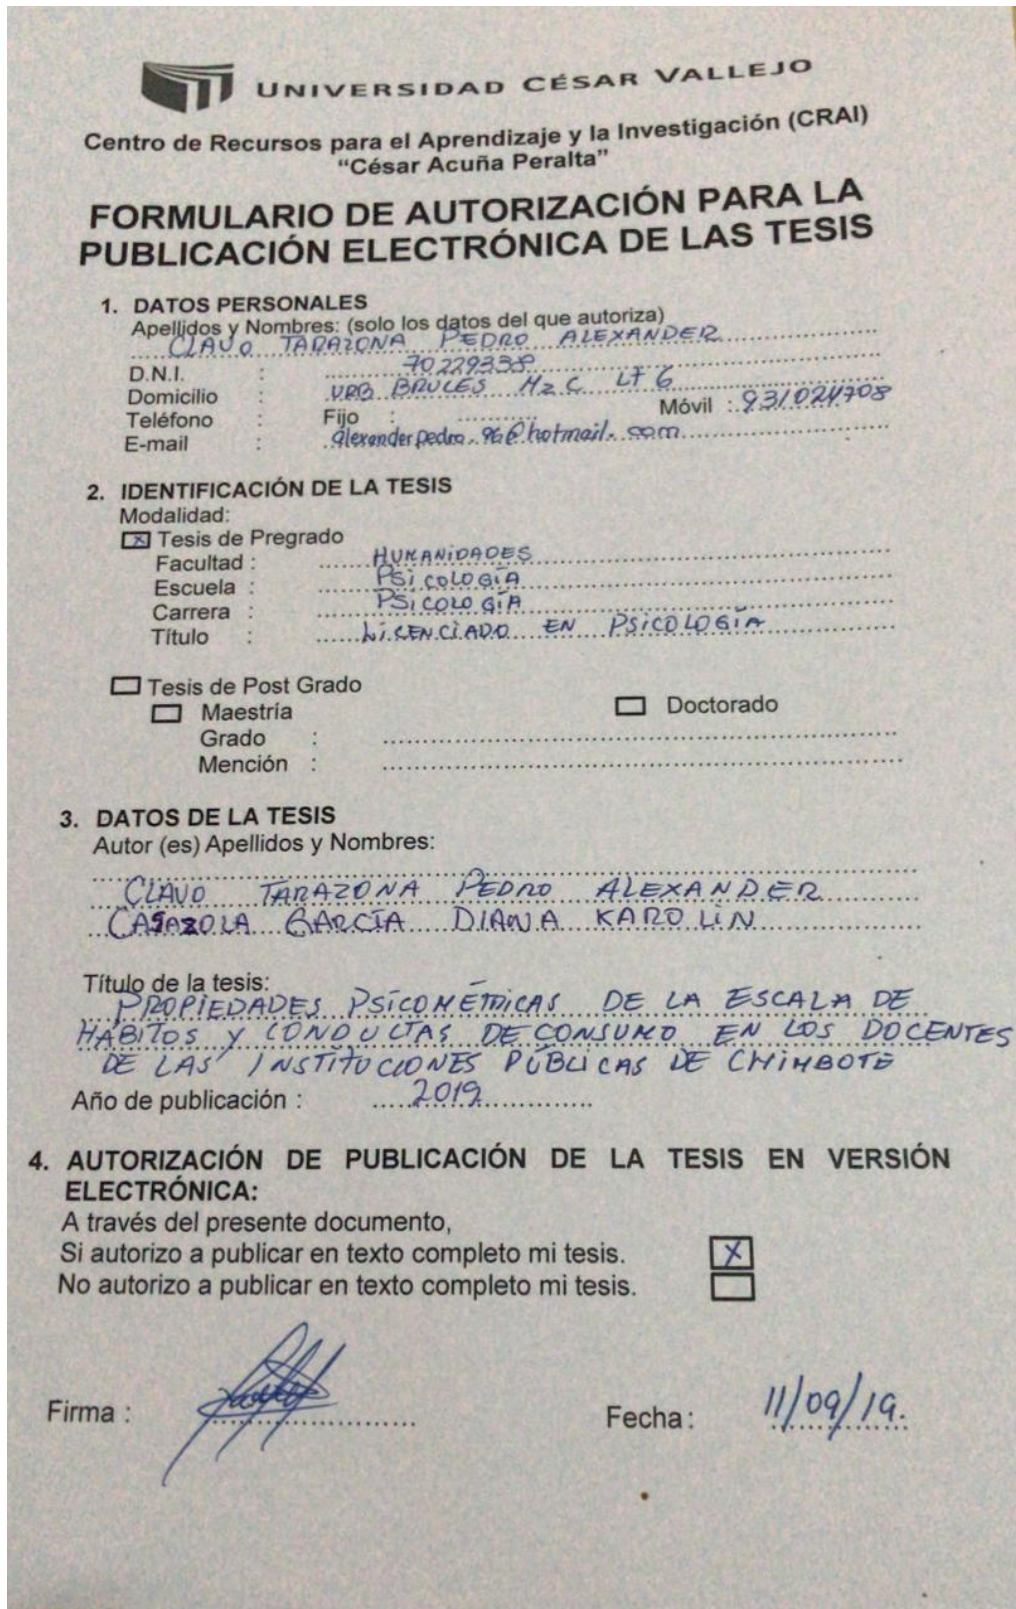 UNIVERSIDAD CÉSAR VALLEJO
Centro de Recursos para el Aprendizaje y la Investigación (CRAI)
“César Acuña Peralta”
FORMULARIO DE AUTORIZACIÓN PARA LA
PUBLICACIÓN ELECTRÓNICA DE LAS TESIS
1. DATOS PERSONALES
Apellidos y Nombres: (solo los datos del que autoriza)
CLAVO TARAZONA PEDRO ALEXANDER
D.N.I. : 70229338
Domicilio : URB BRUCES Mz C LT 6
Teléfono : Fijo : Móvil : 931024708
E-mail : alexanderpedro_96@hotmail.com
2. IDENTIFICACIÓN DE LA TESIS
Modalidad:
X Tesis de Pregrado
Facultad : HUMANIDADES
Escuela : PSICOLOGÍA
Carrera : PSICOLOGÍA
Título : LICENCIADO EN PSICOLOGÍA
Tesis de Post Grado
Maestría Doctorado
Grado :
Mención :
3. DATOS DE LA TESIS
Autor (es) Apellidos y Nombres:
CLAVO TARAZONA PEDRO ALEXANDER
CASAZOLA GARCÍA DIANA KAROLIN
Título de la tesis:
PROPIEDADES PSICOMÉTRICAS DE LA ESCALA DE
HÁBITOS Y CONDUCTAS DE CONSUMO EN LOS DOCENTES
DE LAS INSTITUCIONES PÚBLICAS DE CHIMBOTE
Año de publicación : 2019
4. AUTORIZACIÓN DE PUBLICACIÓN DE LA TESIS EN VERSIÓN
ELECTRÓNICA:
A través del presente documento,
Si autorizo a publicar en texto completo mi tesis. X
No autorizo a publicar en texto completo mi tesis.
Firma : Fecha : 11/09/19.